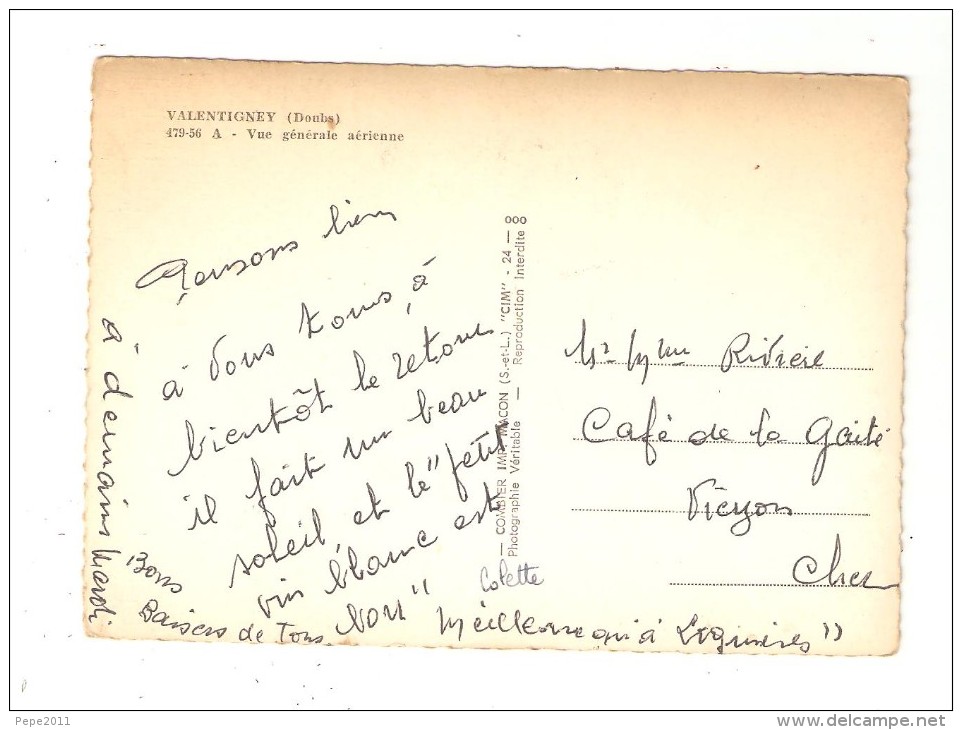 VALENTIGNEY (Doubs)
479-56 A - Vue générale aérienne
Pensons bien
à vous tous, à
bientôt le retour
il fait un beau
soleil, et le "petit
vin blanc est
bon" meilleur qu'à Lignières"
Bons
Baisers de Tous
à demain Mardi
Colette
— COMBIER IMP. MACON (S.-et-L.) "CIM" - 24 — 000
Photographie Véritable — Reproduction Interdite
Mr Mme Rivière
Café de la Gaité
Vierzon
Cher
Pepe2011
www.delcampe.net